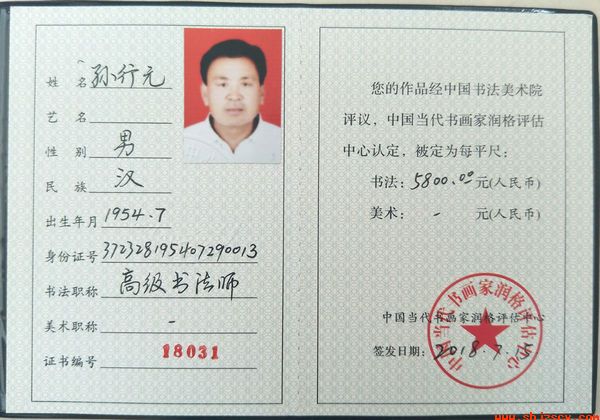 姓 名 孙行元
艺 名
性 别 男
民 族 汉
出生年月 1954.7
身份证号 372328195407290013
书法职称 高级书法师
美术职称 -
证书编号 18031
您的作品经中国书法美术院
评议，中国当代书画家润格评估
中心认定，被定为每平尺：
书法：5800.00元(人民币)
美术： - 元(人民币)
中国当代书画家润格评估中心
签发日期：2018.7.15
中国当代书画家润格评估中心
www.shjzscy.com